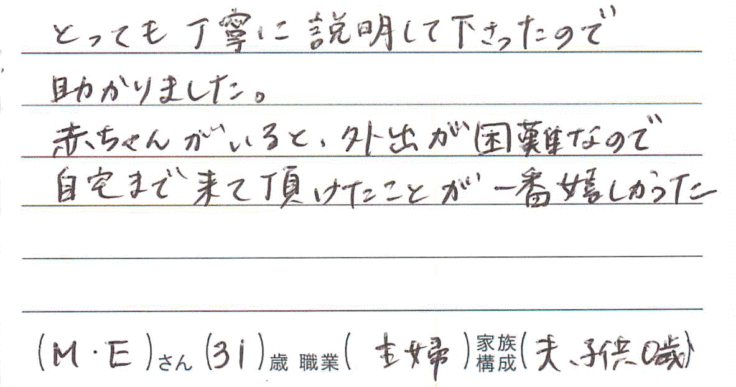 とっても丁寧に説明して下さったので
助かりました。
赤ちゃんがいると、外出が困難なので
自宅まで来て頂けたことが一番嬉しかった
(M・E)さん(31)歳 職業(主婦)家族構成(夫、子供0歳)